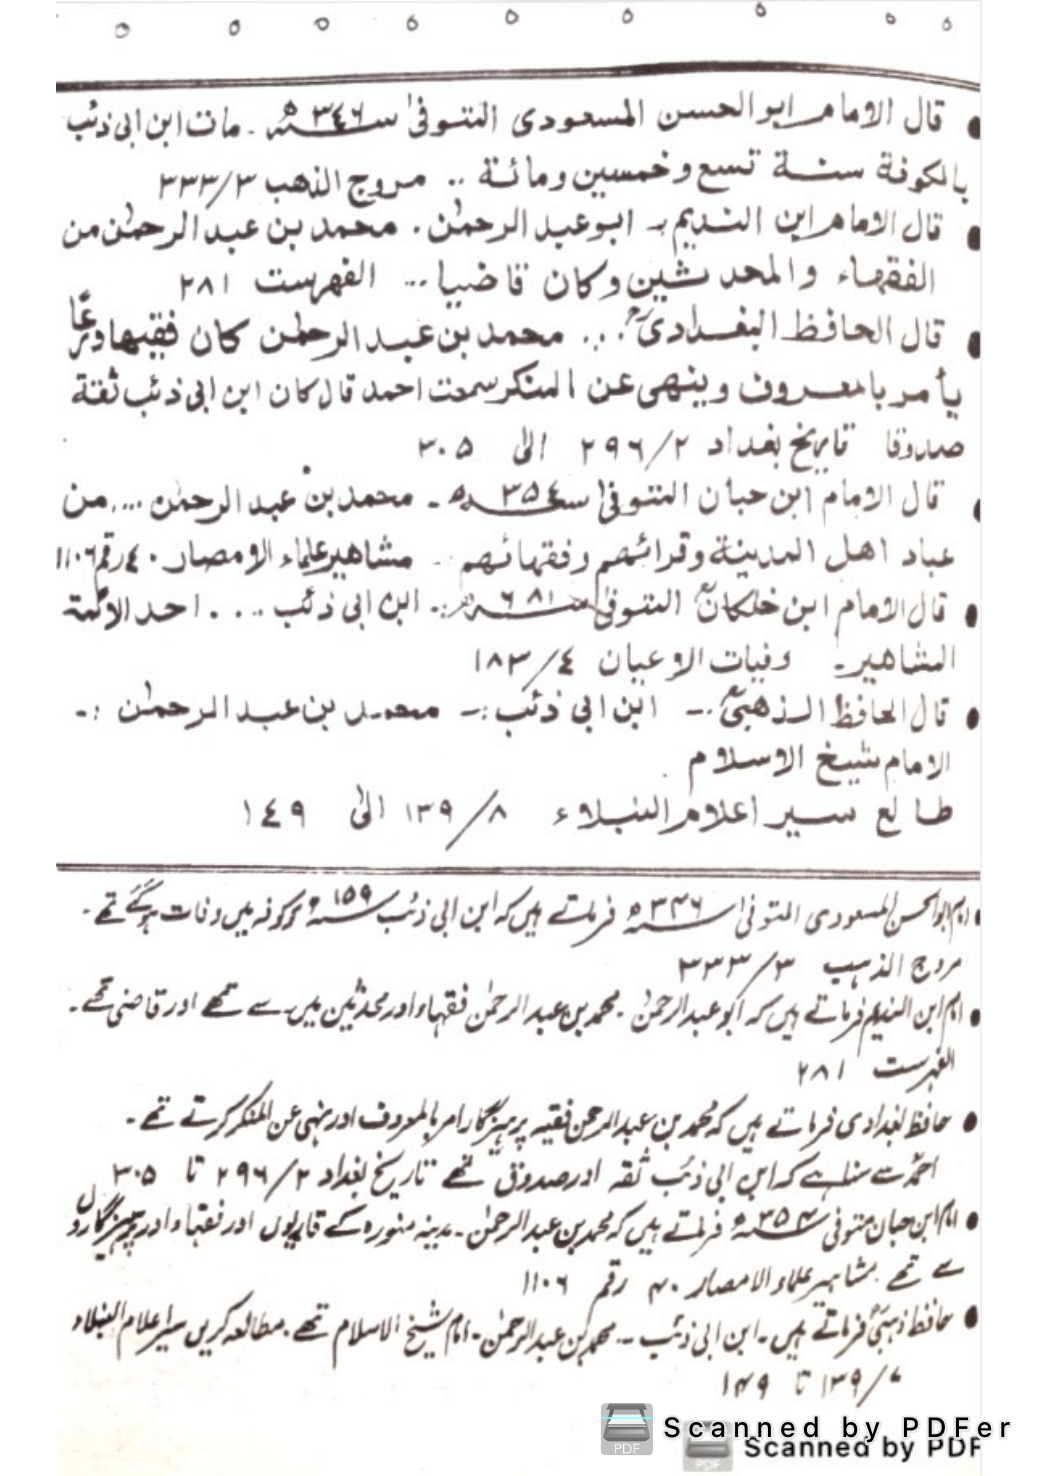 قال الامام ابو الحسن المسعودی المتوفیٰ سنہ ٣٤٦ھ ۔ مات ابن ابی ذئب
بالکوفة سنة تسع وخمسین ومائة .. مروج الذهب ٣/٣٣٣
قال الامام ابن الندیم ۔ ابو عبد الرحمٰن . محمد بن عبد الرحمٰن من
الفقهاء والمحدثین وکان قاضیا ... الفهرست ٢٨١
قال الحافظ البغدادیؒ ... محمد بن عبد الرحمٰن کان فقیها ورعًا
یأمر بالمعروف وینهی عن المنکر سمعت احمد قال کان ابن ابی ذئب ثقة
صدوقا تاریخ بغداد ٢/٢٩٦ الیٰ ٣٠٥
قال الامام ابن حبان المتوفیٰ سنہ ٣٥٤ھ ۔ محمد بن عبد الرحمٰن .... من
عباد اهل المدینة وقرائهم وفقهائهم .. مشاهیر علماء الامصار ١٤٠ رقم ١١٠٦
قال الامام ابن خلکانؒ المتوفیٰ سنہ ٦٨١ھ :۔ ابن ابی ذئب .... احد الائمة
المشاهیر ۔ وفیات الاعیان ٤/١٨٣
قال الحافظ الذهبیؒ :۔ ابن ابی ذئب :۔ محمد بن عبد الرحمٰن :۔
الامام شیخ الاسلام
طالع سیر اعلام النبلاء ٨/١٣٩ الیٰ ١٤٩
امام ابو الحسن المسعودی المتوفیٰ سنہ ٣٤٦ھ فرماتے ہیں کہ ابن ابی ذئب سنہ ١٥٩ھ کو کوفہ میں وفات ہوگئے تھے ۔
مروج الذہب ٣/٣٣٣
امام ابن الندیم فرماتے ہیں کہ ابو عبد الرحمٰن ۔ محمد بن عبد الرحمٰن فقہاء اور محدثین میں سے تھے اور قاضی تھے ۔
الفہرست ٢٨١
حافظ بغدادی فرماتے ہیں کہ محمد بن عبد الرحمٰن فقیہ پرہیزگار امر بالمعروف اور نہی عن المنکر کرتے تھے ۔
احمدؒ سے سنا ہے کہ ابن ابی ذئب ثقہ اور صدوق تھے تاریخ بغداد ٢/٢٩٦ تا ٣٠٥
امام ابن حبان متوفی سنہ ٣٥٤ھ فرماتے ہیں کہ محمد بن عبد الرحمٰن ۔ مدینہ منورہ کے قاریوں اور فقہاء اور پرہیزگاروں
سے تھے . مشاہیر علماء الامصار ١٤٠ رقم ١١٠٦
حافظ ذہبیؒ فرماتے ہیں ۔ ابن ابی ذئب ۔ محمد بن عبد الرحمٰن ۔ امام شیخ الاسلام تھے . مطالعہ کریں سیر اعلام النبلاء
/١٣٩ تا ١٤٩
Scanned by PDFer
Scanned by PDF